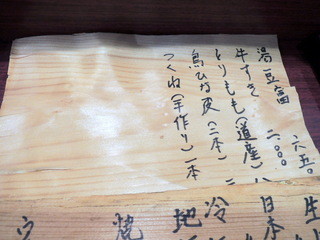 湯豆富 六五〇
牛すき 二〇〇〇
とりもも(道産)
鳥ひな皮(二本)
つくね(手作り)一本
生
日本
冷
地
焼